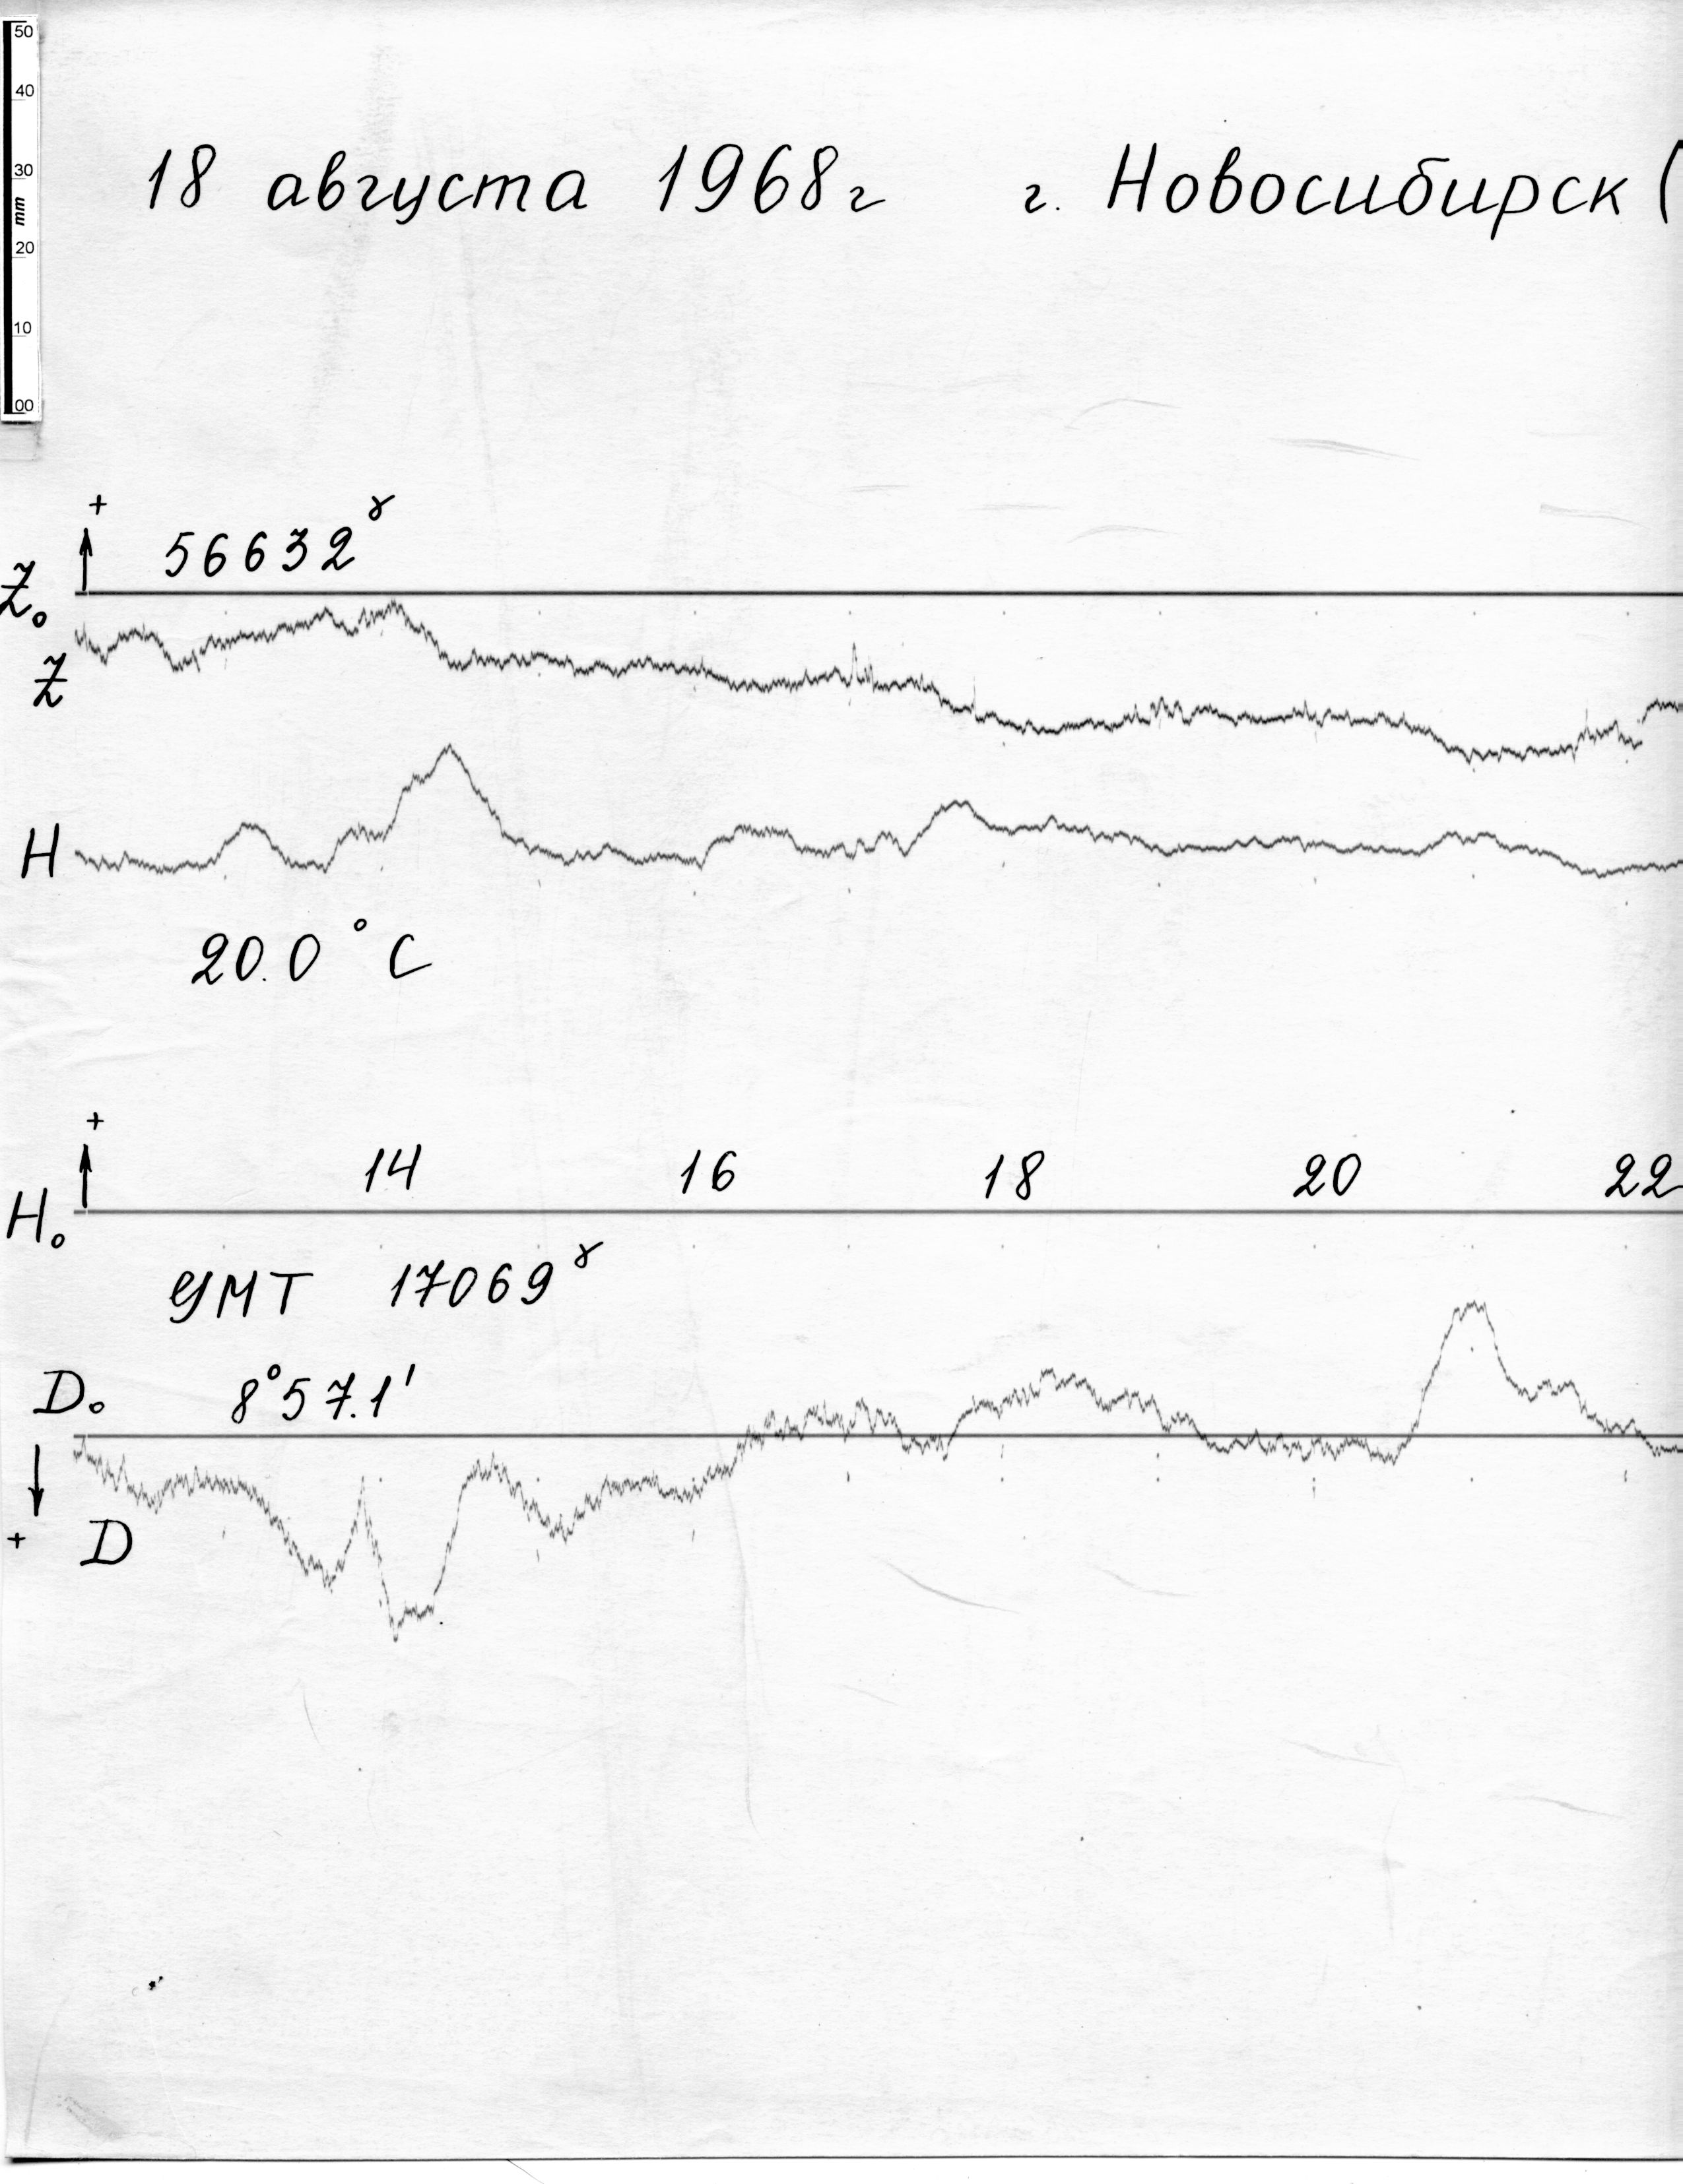 50
40
30
mm
20
10
00
18 августа 1968г г. Новосибирск (
+
56632γ
Z₀
Z
H
20.0°C
+
14 16 18 20 22
H₀
УМТ 17069γ
D₀ 8°57.1'
+ D